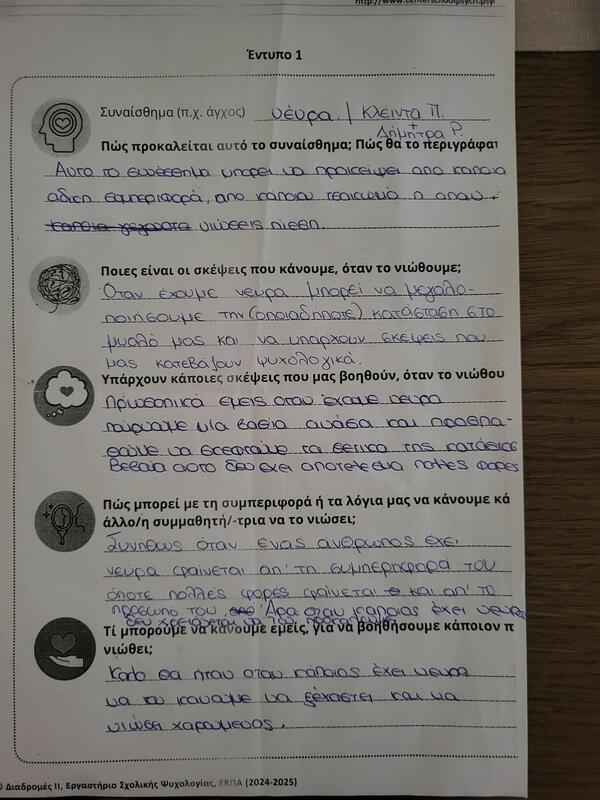 http://www.centerschoolpsych.psy
Έντυπο 1
Συναίσθημα (π.χ. άγχος) νεύρα. / Κλέιντα Π.
+
Δήμητρα Ρ.
Πώς προκαλείται αυτό το συναίσθημα; Πώς θα το περιγράφα
Αυτό το συναίσθημα μπορεί να προκύψει από κάποια
άδικη συμπεριφορά, από κάποιον τσακωμό ή όταν
κάποια γεγονότα νιώθεις πίεση.
Ποιες είναι οι σκέψεις που κάνουμε, όταν το νιώθουμε;
Όταν έχουμε νεύρα μπορεί να μεγαλο-
ποιήσουμε την (οποιαδήποτε) κατάσταση στο
μυαλό μας και να υπάρχουν σκέψεις που
μας κατεβάζουν ψυχολογικά.
Υπάρχουν κάποιες σκέψεις που μας βοηθούν, όταν το νιώθου
Προσωπικά εμείς όταν έχουμε νεύρα
παίρνουμε μία βαθιά ανάσα και προσπα-
θούμε να σκεφτούμε τα θετικά της κατάστασης
Βέβαια αυτό δεν έχει αποτέλεσμα πολλές φορές
Πώς μπορεί με τη συμπεριφορά ή τα λόγια μας να κάνουμε κά
άλλο/η συμμαθητή/-τρια να το νιώσει;
Συνήθως όταν ένας άνθρωπος έχει
νεύρα φαίνεται απ' τη συμπεριφορά του
όποτε πολλές φορές φαίνεται και απ' το
πρόσωπό του. Άρα όταν κάποιος έχει νεύρα
δεν χρειάζεται να τον προκαλούμε
Τί μπορούμε να κάνουμε εμείς, για να βοηθήσουμε κάποιον π
νιώθει;
Καλό θα ήταν όταν κάποιος έχει νεύρα
να τον κάνουμε να ξεχαστεί και να
νιώσει χαρούμενος.
© Διαδρομές ΙΙ, Εργαστήριο Σχολικής Ψυχολογίας, ΕΚΠΑ (2024-2025)